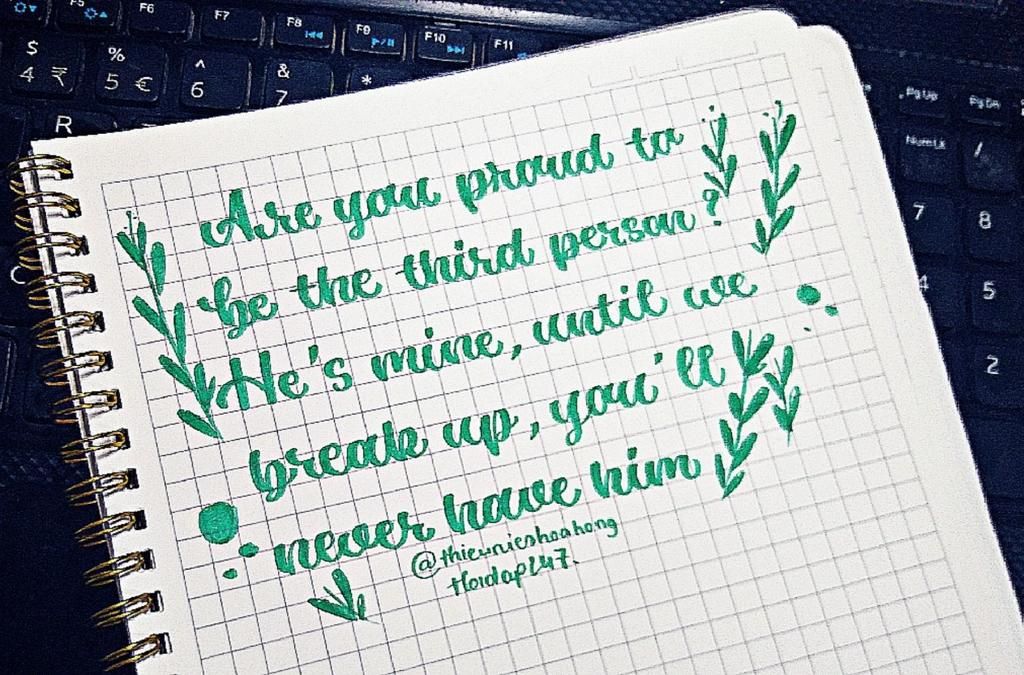 F5 F6 F7 F8 F9 F10 F11
$ % ^ & *
4 ₹ 5 € 6 7
R
PgUp PgDn
NumLk /
7 8
4 5
2
Are you proud to
be the third person?
He's mine, until we
break up, you'll
never have him